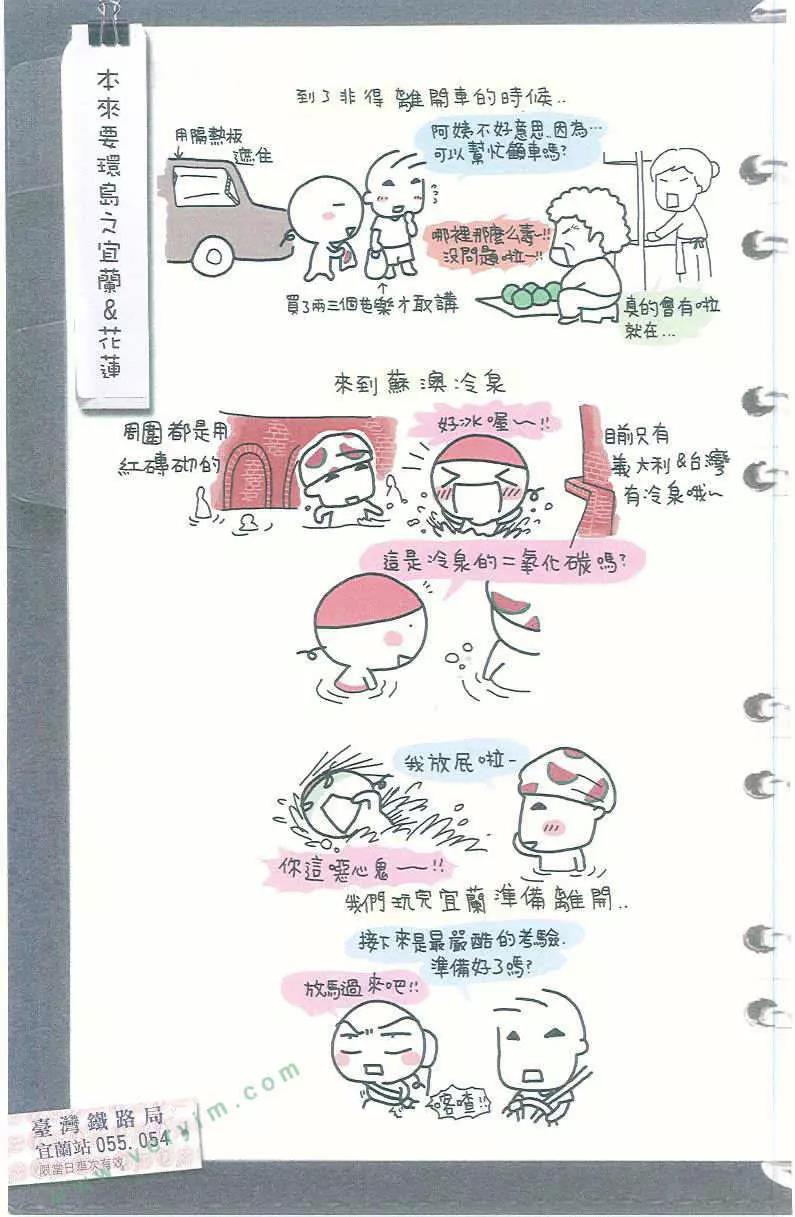 本來要環島之宜蘭&花蓮
到了非得離開車的時候..
用隔熱板
遮住
阿姨不好意思..因為…
可以幫忙顧車嗎?
哪裡那麼么壽~!!
沒問題啦~!!
買了兩三個芭樂才敢講
真的會有啦
就在...
來到蘇澳冷泉
周圍都是用
紅磚砌的
好冰喔~!!
目前只有
義大利&台灣
有冷泉哦~
這是冷泉的二氧化碳嗎?
我放屁啦~
你這噁心鬼~!!
我們玩完宜蘭準備離開..
接下來是最嚴酷的考驗.
準備好了嗎?
放馬過來吧!!
喀喳!!
臺灣鐵路局
宜蘭站 055.054
限當日單次有效
www.voryim.com